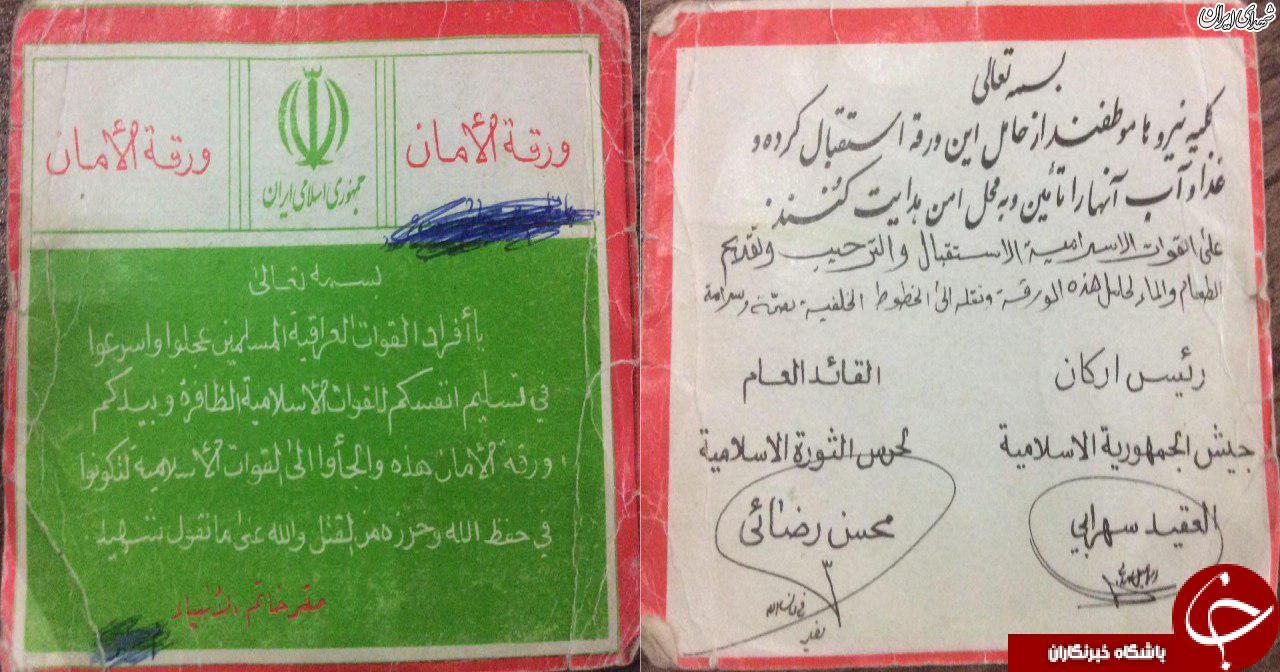 ورقـة الأمان
جمهوری اسلامی ایران
ورقـة الأمان
بسمه تعالى
يا أفراد القوات العراقية المسلمين عجلوا واسرعوا
في تسليم انفسكم للقوات الاسلامية الظافرة وبيدكم
ورقة الأمان هذه والجأوا الى القوات الاسلامية لتكونوا
في حفظ الله وحرزه من القتل والله على ما نقول شهيد.
مقر خاتم الأنبياء
شهدای ایران
بسمه تعالی
کلیه نیروها موظفند از حامل این ورقه استقبال کرده و
غذا و آب آنها را تأمین و به محل امن هدایت کنند.
على القوات الاسلامية الاستقبال والترحيب وتقديم
الطعام والماء لحامل هذه الورقة ونقله الى الخطوط الخلفية بصحة وسلامة
رئيس اركان
جيش الجمهورية الاسلامية
العقيد سهرابي
القائد العام
لحرس الثورة الاسلامية
محسن رضائي
باشگاه خبرنگاران